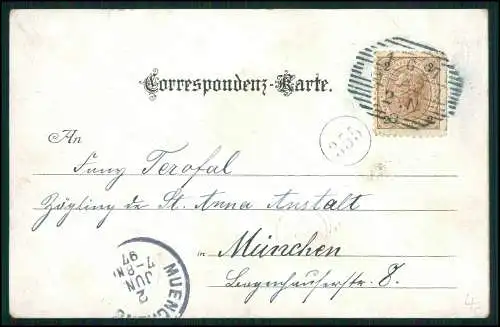 Correspondenz-Karte.
An
Fany Terofal
Zögling des St. Anna Anstalt
in München
8.
355
MUENCHEN
2
JUN
7-8 N
97